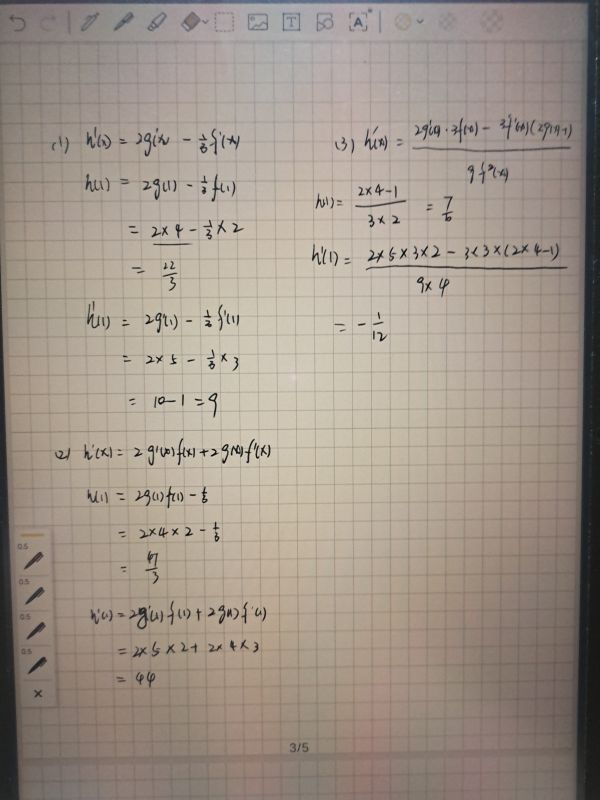 (1) h'(x) = 2g'(x) - 1/3 f'(x)
h(1) = 2g(1) - 1/3 f(1)
= 2×4 - 1/3 × 2
= 22/3
h'(1) = 2g'(1) - 1/3 f'(1)
= 2×5 - 1/3 × 3
= 10-1 = 9
(2) h'(x) = 2g'(x)f(x) + 2g(x)f'(x)
h(1) = 2g(1)f(1) - 1/3
= 2×4×2 - 1/3
= 47/3
h'(1) = 2g'(1)f(1) + 2g(1)f'(1)
= 2×5×2 + 2×4×3
= 44
(3) h'(x) = 2g'(x)·3f(x) - 3f'(x)(2g(x)-1) / 9f²(x)
h(1) = 2×4-1 / 3×2 = 7/6
h'(1) = 2×5×3×2 - 3×3×(2×4-1) / 9×4
= -1/12
T
A
0.5
0.5
0.5
0.5
3/5